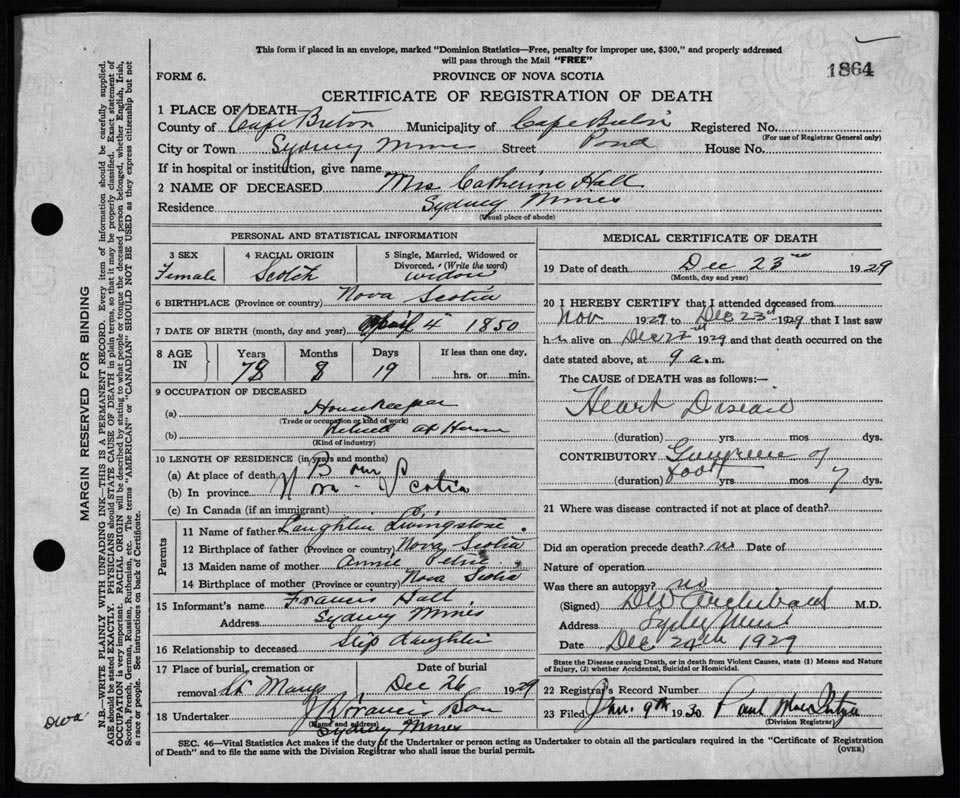 This form if placed in an envelope, marked "Dominion Statistics—Free, penalty for improper use, $300," and properly addressed
will pass through the Mail "FREE"
1864
FORM 6.
PROVINCE OF NOVA SCOTIA
CERTIFICATE OF REGISTRATION OF DEATH
1 PLACE OF DEATH
County of Cape Breton Municipality of Cape Breton Registered No.
(For use of Registrar General only)
City or Town Sydney Mines Street Pond House No.
If in hospital or institution, give name
2 NAME OF DECEASED Mrs Catherine Hall
Residence Sydney Mines
(Usual place of abode)
PERSONAL AND STATISTICAL INFORMATION
3 SEX
Female
4 RACIAL ORIGIN
Scotch
5 Single, Married, Widowed or
Divorced. (Write the word)
widow
6 BIRTHPLACE (Province or country) Nova Scotia
7 DATE OF BIRTH (month, day and year) April 4 1850
8 AGE IN
Years Months Days If less than one day,
78 8 19 hrs. or min.
9 OCCUPATION OF DECEASED
(a) Housekeeper
(Trade or occupation or kind of work)
(b) Retired at Home
(Kind of industry)
10 LENGTH OF RESIDENCE (in years and months)
(a) At place of death Born
(b) In province Nova Scotia
(c) In Canada (if an immigrant)
Parents
11 Name of father Laughlin Livingstone.
12 Birthplace of father (Province or country) Nova Scotia
13 Maiden name of mother Annie Petrie
14 Birthplace of mother (Province or country) Nova Scotia
15 Informant's name Francis Hall
Address Sydney Mines
16 Relationship to deceased Step daughter
17 Place of burial, cremation or Date of burial
removal St Marys Dec 26 1929
18 Undertaker Francis
(Name and address)
Sydney Mines
MEDICAL CERTIFICATE OF DEATH
19 Date of death Dec 23rd 1929
(Month, day and year)
20 I HEREBY CERTIFY that I attended deceased from
Nov 1929 to Dec 23rd 1929 that I last saw
her alive on Dec 1929 and that death occurred on the
date stated above, at 9 a.m.
The CAUSE of DEATH was as follows:—
Heart Disease
(duration) yrs. mos. dys.
CONTRIBUTORY Gangrene of
foot
(duration) yrs. mos. 7 dys.
21 Where was disease contracted if not at place of death?
Did an operation precede death? no Date of
Nature of operation
Was there an autopsy? no
(Signed) DW Archibald M.D.
Address Sydney Mines
Date Dec 24th 1929
State the Disease causing Death, or in death from Violent Causes, state (1) Means and Nature
of Injury, (2) whether Accidental, Suicidal or Homicidal.
22 Registrar's Record Number
23 Filed Jan. 9th 1930 Paul
(Division Registrar)
SEC. 46—Vital Statistics Act makes it the duty of the Undertaker or person acting as Undertaker to obtain all the particulars required in the "Certificate of Registration
of Death" and to file the same with the Division Registrar who shall issue the burial permit. (OVER)
MARGIN RESERVED FOR BINDING
N.B.—WRITE PLAINLY WITH UNFADING INK—THIS IS A PERMANENT RECORD. Every item of information should be carefully supplied.
AGE should be stated EXACTLY. PHYSICIANS should STATE CAUSE OF DEATH in plain terms, so that it may be properly classified. Exact statement of
OCCUPATION is very important. RACIAL ORIGIN will be described by stating to what people or tongue the deceased person belonged, whether English, Irish,
Scotch, French, German, Russian, Ruthenian, etc. The terms "AMERICAN" or "CANADIAN" SHOULD NOT BE USED as they express citizenship but not
a race or people. See instructions on back of Certificate.